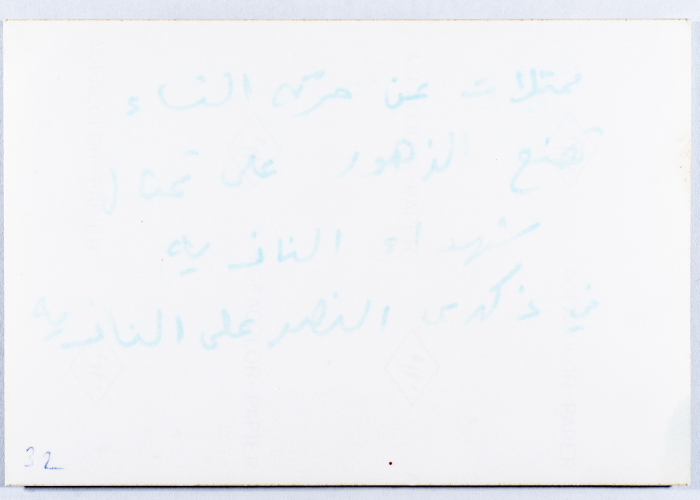 ممثلات عن حركة النساء
تضع الزهور على تمثال
شهداء النازيه
في ذكرى النصر على النازيه
32